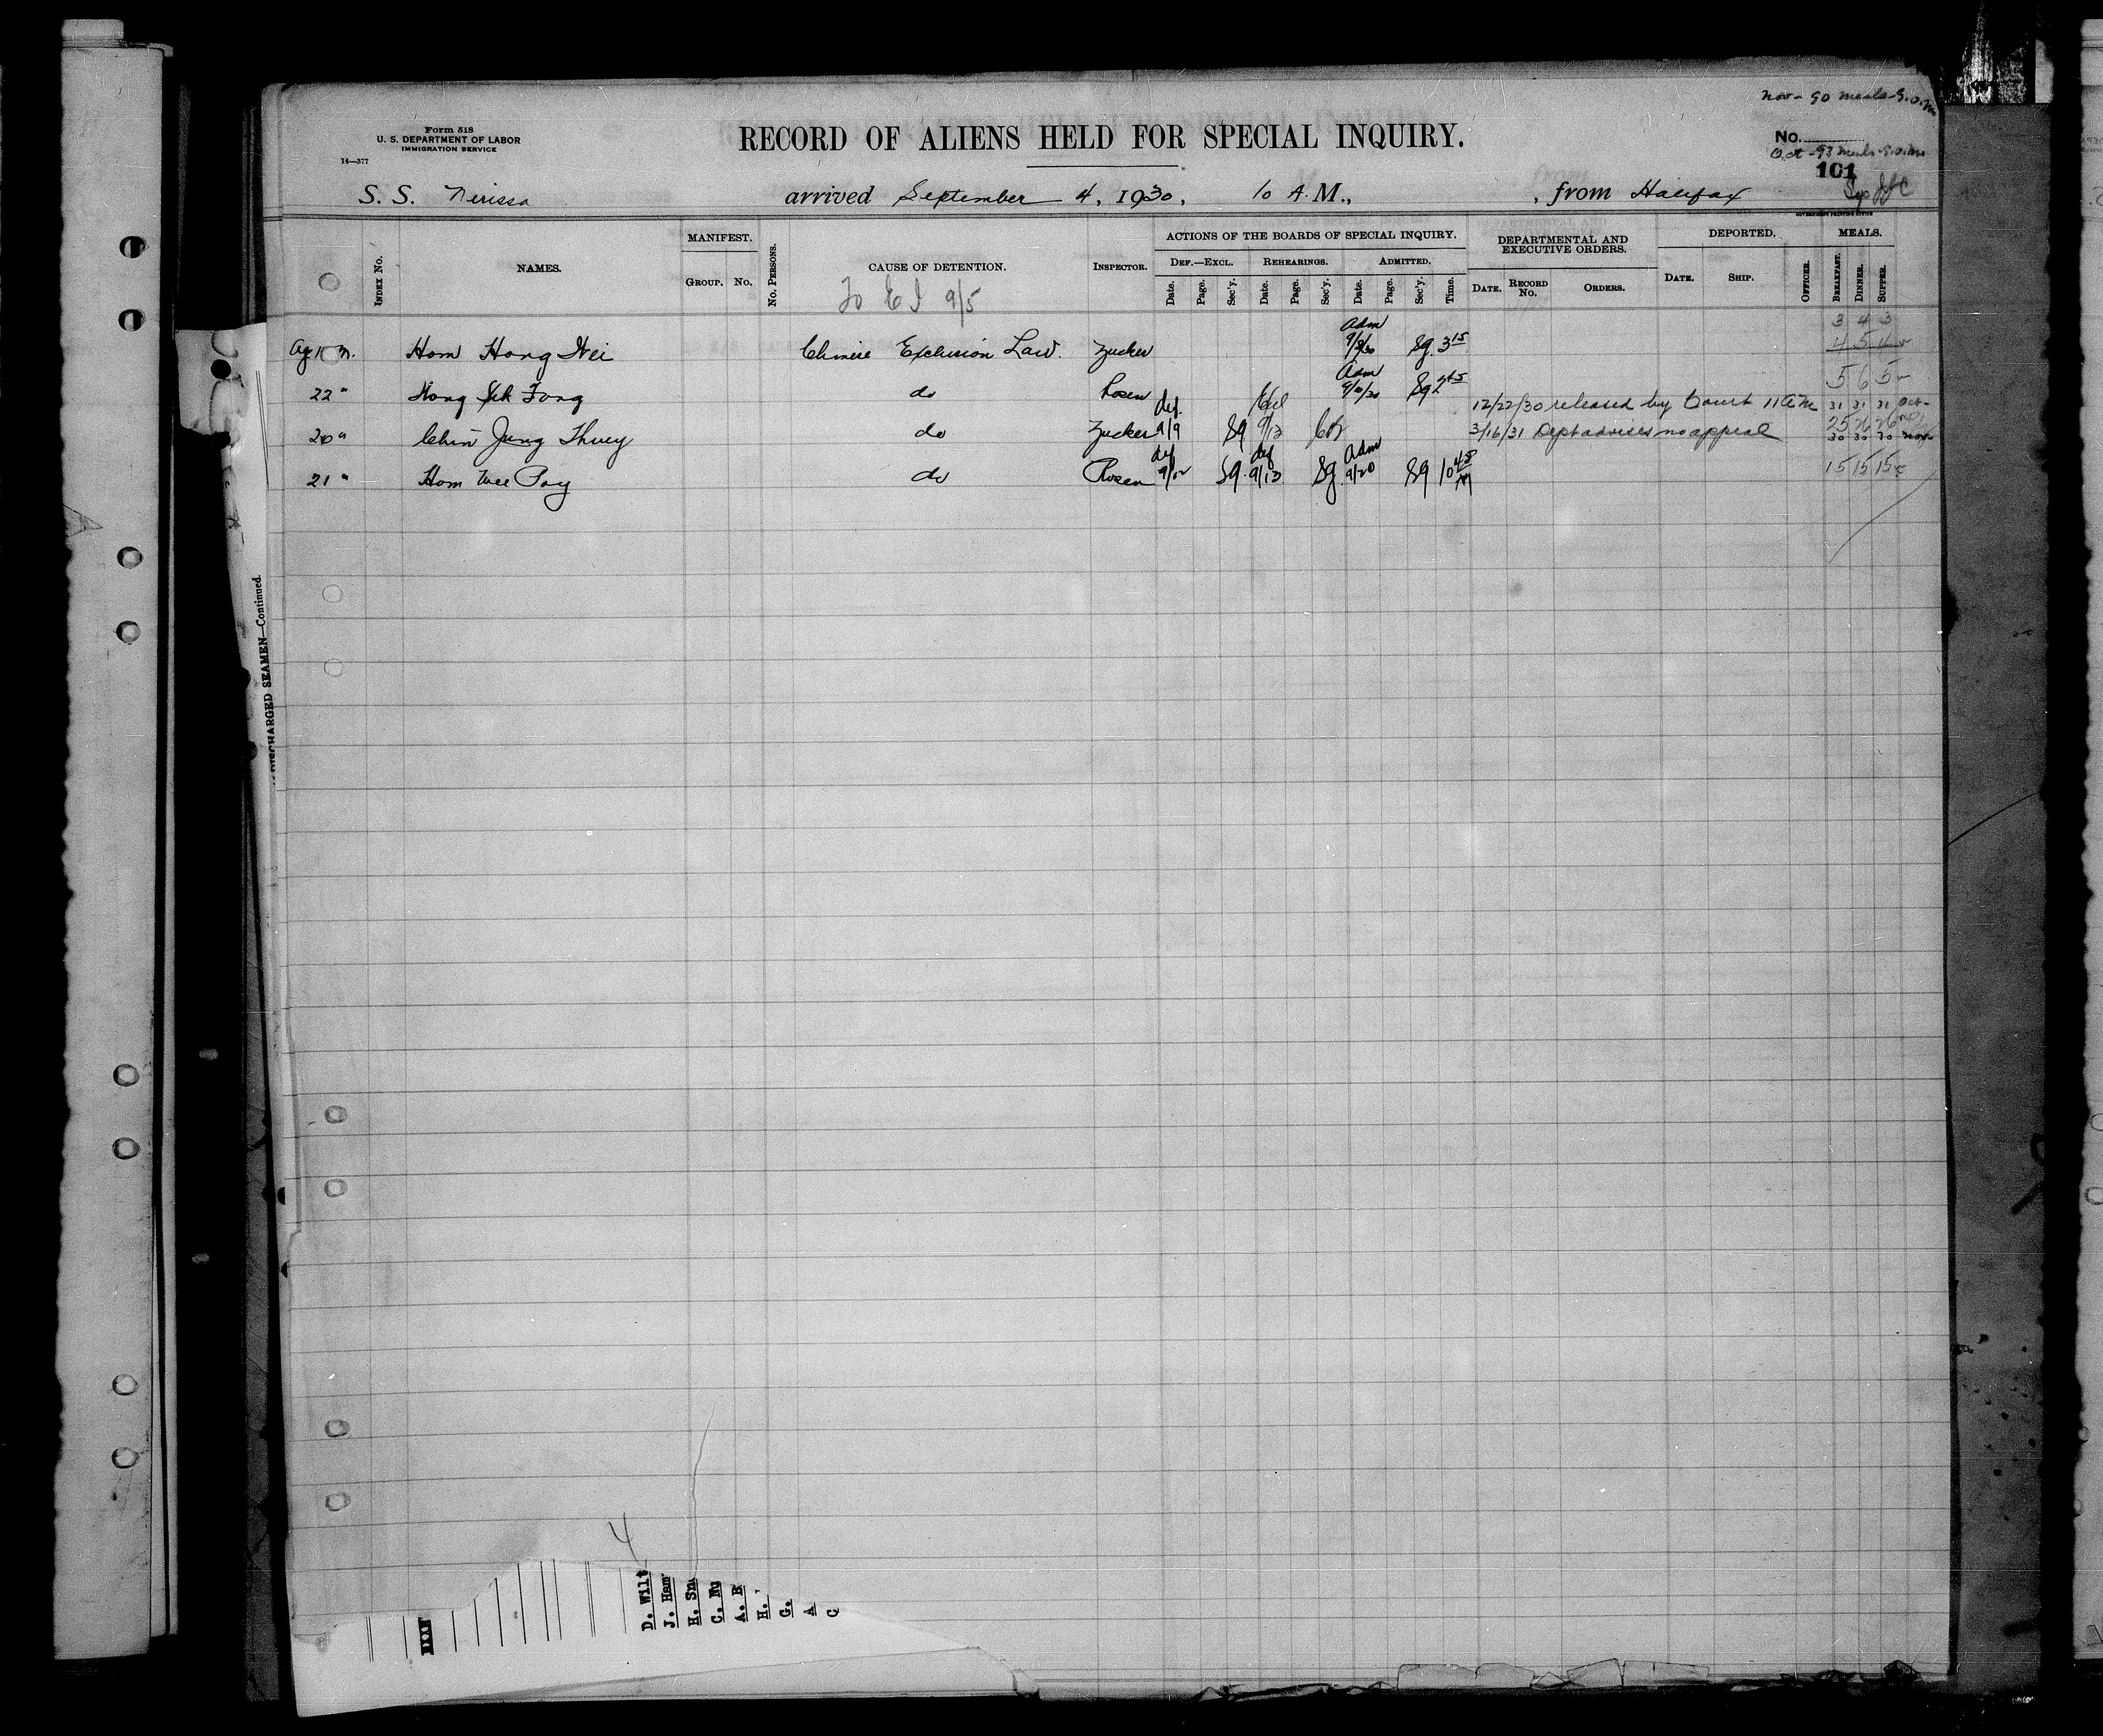 nov - 90 meals - S.O.M
Form 518
U. S. DEPARTMENT OF LABOR
IMMIGRATION SERVICE
14—377
RECORD OF ALIENS HELD FOR SPECIAL INQUIRY.
No.
Oct - 93 meals - S.O.M
101
S. S. Nerissa arrived September 4, 1930, 10 A.M., , from Halifax
GOVERNMENT PRINTING OFFICE
INDEX No. NAMES. MANIFEST. GROUP. No. No. PERSONS. CAUSE OF DETENTION. INSPECTOR. ACTIONS OF THE BOARDS OF SPECIAL INQUIRY. DEPARTMENTAL AND EXECUTIVE ORDERS. DEPORTED. MEALS.
DEF.—EXCL. REHEARINGS. ADMITTED.
Date. Page. Sec'y. Date. Page. Sec'y. Date. Page. Sec'y. Time. DATE. RECORD No. ORDERS. DATE. SHIP. OFFICER. BREAKFAST. DINNER. SUPPER.
To E I 9/5
3 4 3
Hom Hong Nei Chinese Exclusion Law. Zucker Adm 9/8/30 Sg. 3 15 4 5 4
22 " Hong Sek Fong do Rosen Adm 9/10/30 Sg 2 45 5 6 5
12/22/30 released by Court 11 AM 31 31 31 Oct-
20 " Chin Jung Thuey do Zucker def. 9/9 Sg Excl 9/12 3/16/31 Dept advises no appeal 25 26 26
30 30 30 nov-
21 " Hom Wee Poy do Rosen def 9/12 Sg. def 9/13 Sg. Adm 9/20 Sg 10 45 AM 15 15 15
DISCHARGED SEAMEN—Continued.
4
D. Wilt
J. Ham
H. Sn
C. Nu
A. B
H.
G.
A
C